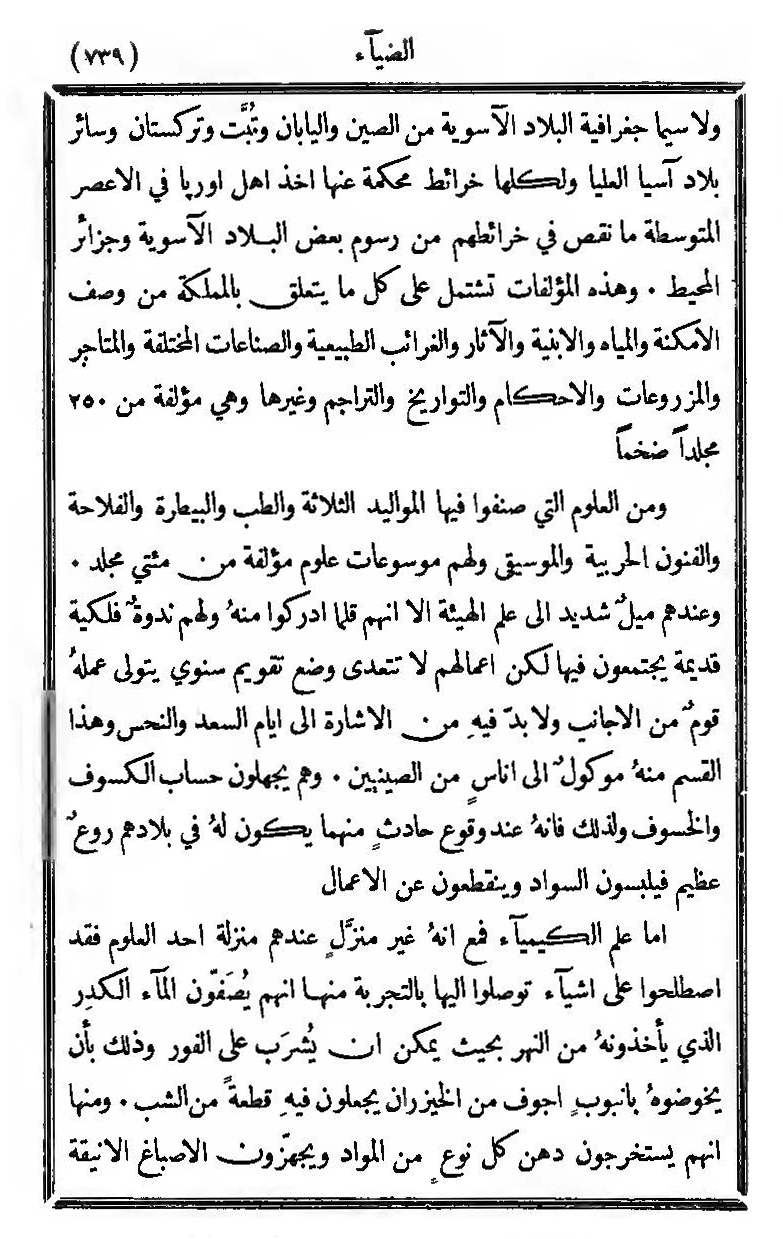 الضيآء
(٧٣٩)
ولا سيما جغرافية البلاد الآسوية من الصين واليابان وتُبَّت وتركستان وسائر
بلاد آسيا العليا ولكلها خرائط محكمة عنها اخذ اهل اوربا في الاعصر
المتوسطة ما نقص في خرائطهم من رسوم بعض البلاد الآسوية وجزائر
المحيط ٠ وهذه المؤلفات تشتمل على كل ما يتعلق بالمملكة من وصف
الامكنة والمياه والابنية والآثار والغرائب الطبيعية والصناعات المختلفة والمتاجر
والمزروعات والاحكام والتواريخ والتراجم وغيرها وهي مؤلفة من ٢٥٠
مجلداً ضخماً
ومن العلوم التي صنفوا فيها المواليد الثلاثة والطب والبيطرة والفلاحة
والفنون الحربية والموسيقى ولهم موسوعات علوم مؤلفة من مئتي مجلد ٠
وعندهم ميلٌ شديد الى علم الهيئة الا انهم قلما ادركوا منهُ ولهم ندوةٌ فلكية
قديمة يجتمعون فيها لكن اعمالهم لا تتعدى وضع تقويم سنوي يتولى عملهُ
قومٌ من الاجانب ولا بدّ فيهِ من الاشارة الى ايام السعد والنحس وهذا
القسم منهُ موكولٌ الى اناسٍ من الصينيين ٠ وهم يجهلون حساب الكسوف
والخسوف ولذلك فانهُ عند وقوع حادثٍ منهما يكون لهُ في بلادهم روعٌ
عظيم فيلبسون السواد وينقطعون عن الاعمال
اما علم الكيميآء فمع انهُ غير منزَّلٍ عندهم منزلة احد العلوم فقد
اصطلحوا على اشيآء توصلوا اليها بالتجربة منها انهم يُصَفّون المآء الكدِر
الذي يأخذونهُ من النهر بحيث يمكن ان يُشرَب على الفور وذلك بأن
يخوضوهُ بانبوبٍ اجوف من الخيزران يجعلون فيهِ قطعةً من الشب ٠ ومنها
انهم يستخرجون دهن كل نوعٍ من المواد ويجهّزون الاصباغ الانيقة